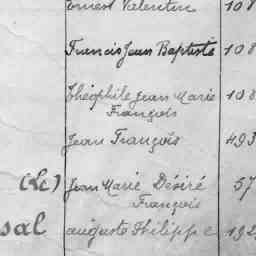 Ernest Valentin 108
Francis Jean Baptiste 108
Théophile Jean Marie 108
François
Jean François 493
(Le) Jean Marie Désiré 57
François
sal auguste Philippe 192